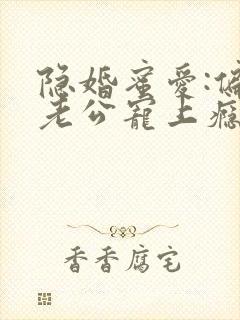 隐婚蜜爱:偏
老公宠上瘾
香香腐宅